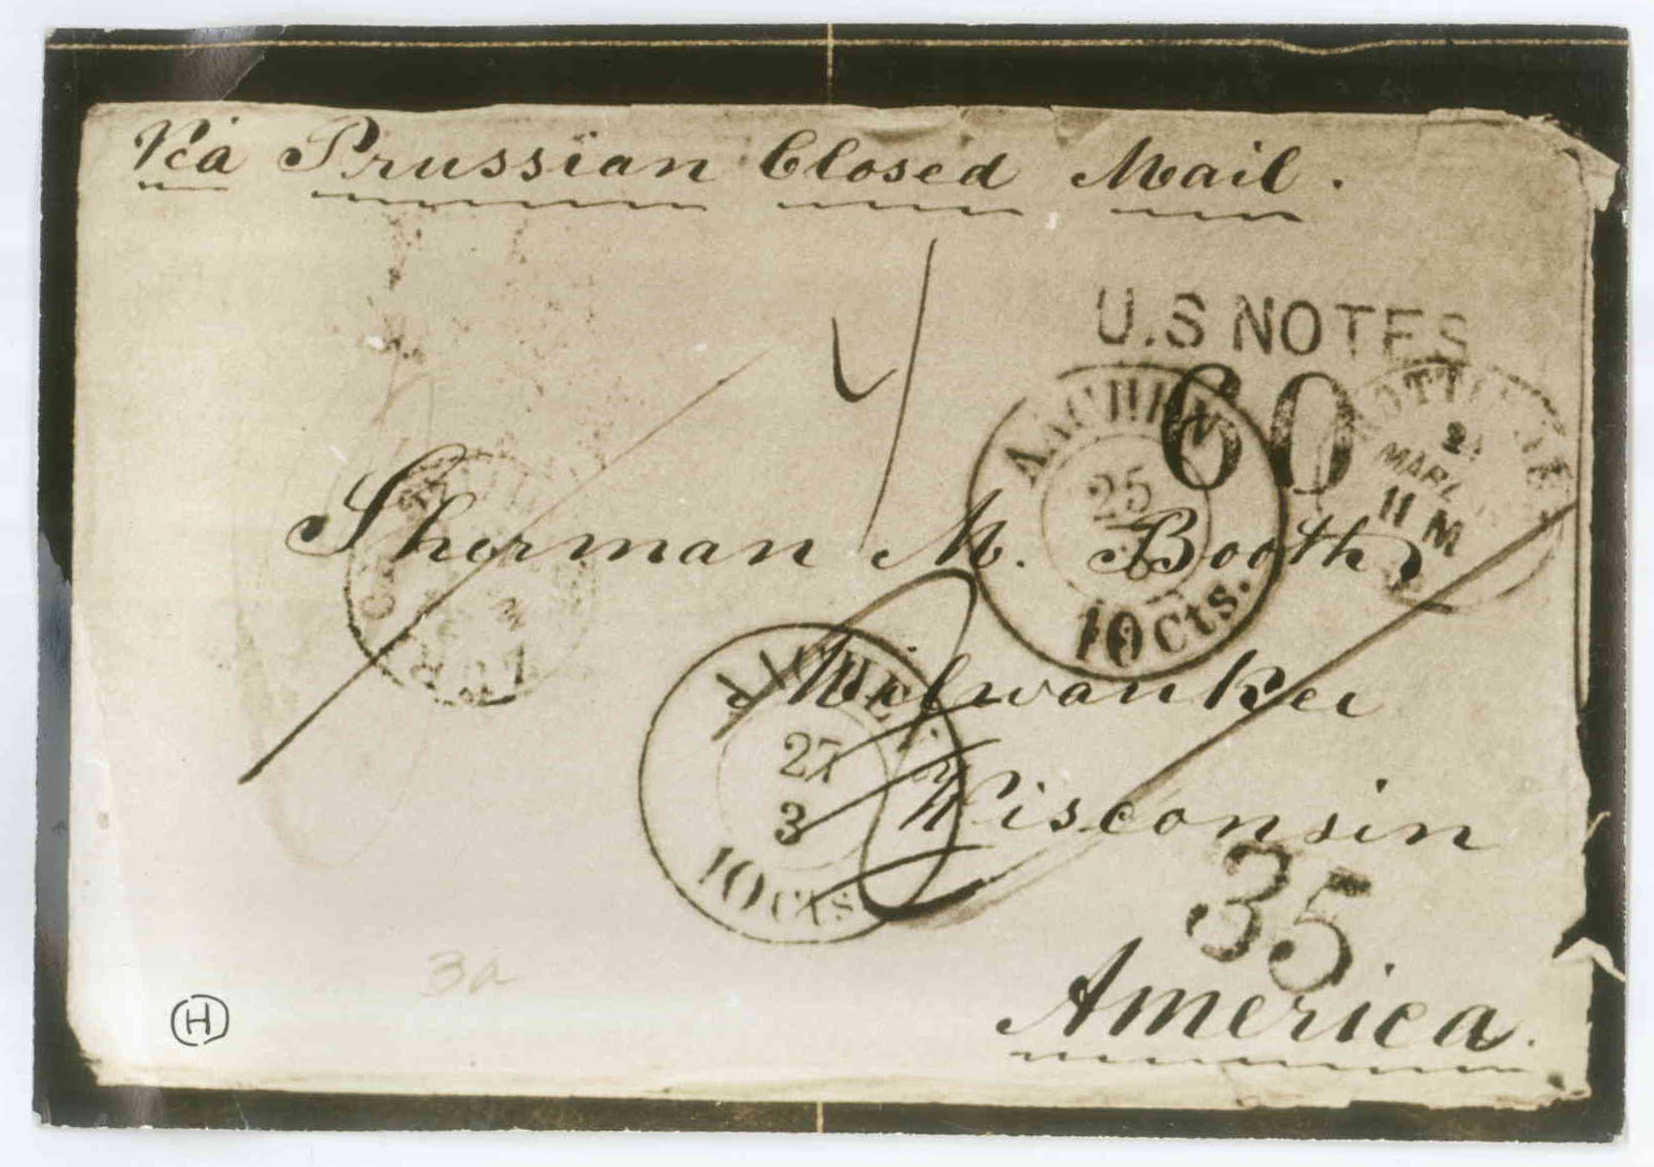 Via Prussian Closed Mail.
U.S NOTES
60
AACHEN
25
3
10 Cts.
MAR
11 M
Sherman M. Booth,
Milwaukee
27
3
10 cts
Wisconsin
35
America.
3a
H